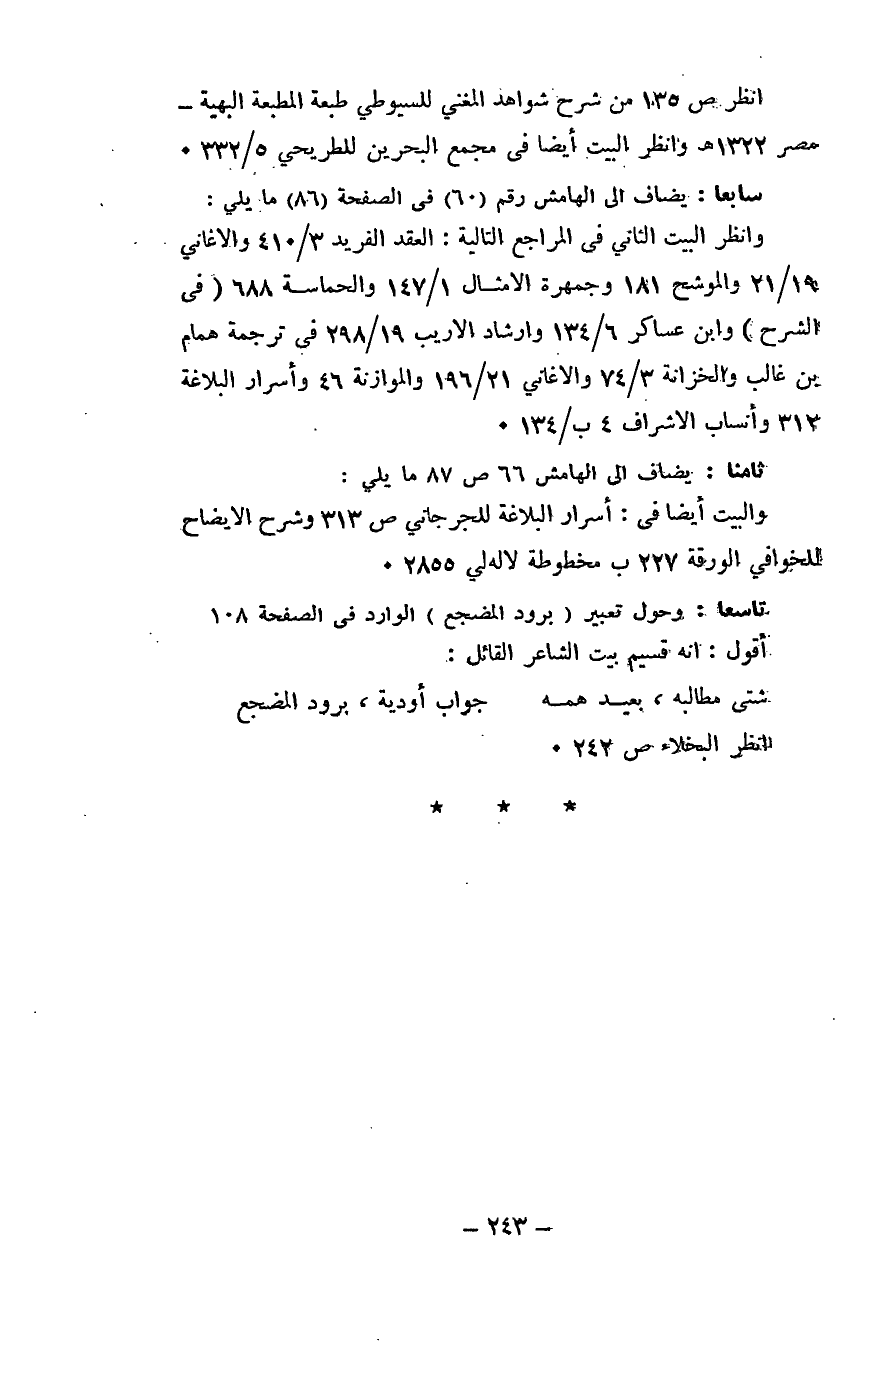 انظر ص ١٣٥ من شرح شواهد المغني للسيوطي طبعة المطبعة البهية –
مصر ١٣٢٢هـ وانظر البيت أيضا فى مجمع البحرين للطريحي ٣٣٢/٥ .
سابعا : يضاف الى الهامش رقم (٦٠) فى الصفحة (٨٦) ما يلي :
وانظر البيت الثاني فى المراجع التالية : العقد الفريد ٤١٠/٣ والاغاني
٢١/١٩ والموشح ١٨١ وجمهرة الامثـال ١٤٧/١ والحماسـة ٦٨٨ ( فى
الشرح ) وابن عساكر ١٣٤/٦ وارشاد الاريب ٢٩٨/١٩ فى ترجمة همام
بن غالب والخزانة ٧٤/٣ والاغاني ١٩٦/٢١ والموازنة ٤٦ وأسرار البلاغة
٣١٣ وأنساب الاشراف ٤ ب/١٣٤ .
ثامنا : يضاف الى الهامش ٦٦ ص ٨٧ ما يلي :
والبيت أيضا فى : أسرار البلاغة للجرجاني ص ٣١٣ وشرح الايضاح
للخوافي الورقة ٢٢٧ ب مخطوطة لالهلي ٢٨٥٥ .
تاسعا : وحول تعبير ( برود المضجع ) الوارد فى الصفحة ١٠٨
أقول : انه قسيم بيت الشاعر القائل :
شتى مطالبه ، بعيـد همـه جواب أودية ، برود المضجع
انظر البخلاء ص ٢٤٢ .
* * *
– ٢٤٣ –